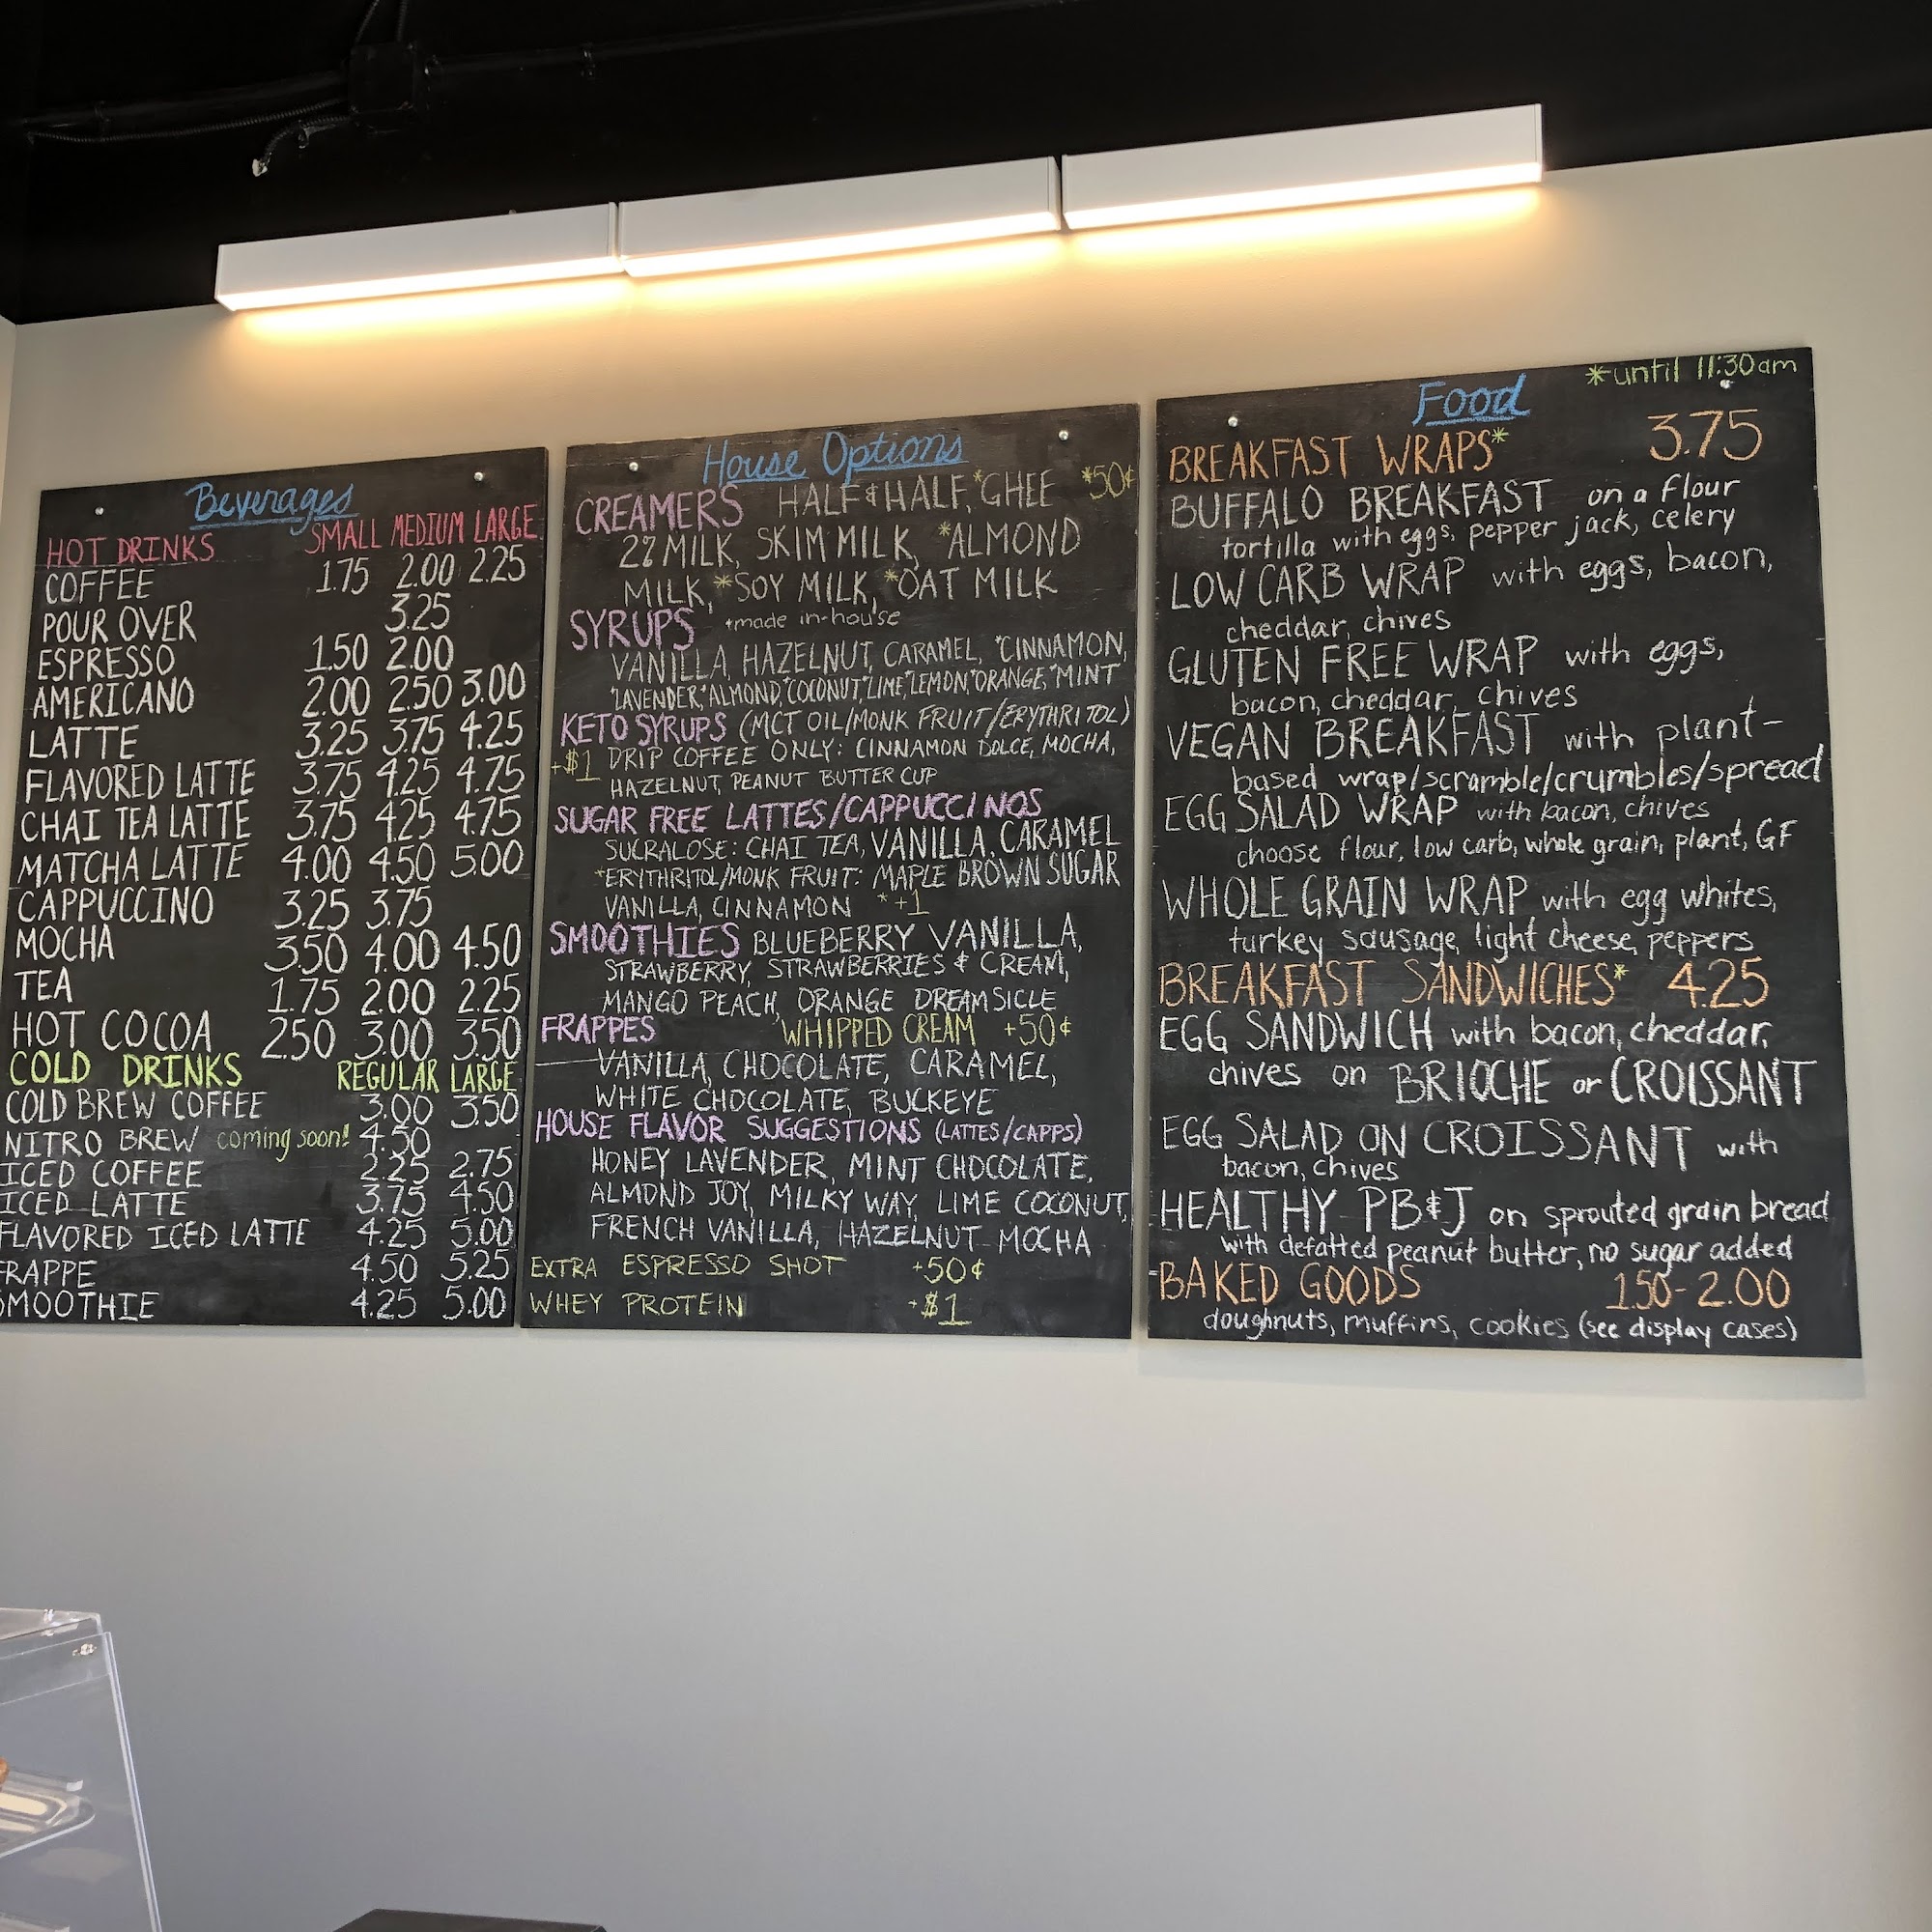 Beverages
HOT DRINKS SMALL MEDIUM LARGE
COFFEE 1.75 2.00 2.25
POUR OVER 3.25
ESPRESSO 1.50 2.00
AMERICANO 2.00 2.50 3.00
LATTE 3.25 3.75 4.25
FLAVORED LATTE 3.75 4.25 4.75
CHAI TEA LATTE 3.75 4.25 4.75
MATCHA LATTE 4.00 4.50 5.00
CAPPUCCINO 3.25 3.75
MOCHA 3.50 4.00 4.50
TEA 1.75 2.00 2.25
HOT COCOA 2.50 3.00 3.50
COLD DRINKS REGULAR LARGE
COLD BREW COFFEE 3.00 3.50
NITRO BREW coming soon! 4.50
ICED COFFEE 2.25 2.75
ICED LATTE 3.75 4.50
FLAVORED ICED LATTE 4.25 5.00
FRAPPE 4.50 5.25
SMOOTHIE 4.25 5.00
House Options
CREAMERS HALF & HALF, *GHEE *50¢
2% MILK, SKIM MILK, *ALMOND
MILK, *SOY MILK, *OAT MILK
SYRUPS *made in-house
VANILLA, HAZELNUT, CARAMEL, *CINNAMON,
*LAVENDER, *ALMOND, *COCONUT, *LIME, *LEMON, *ORANGE, *MINT
KETO SYRUPS (MCT OIL/MONK FRUIT/ERYTHRITOL)
+$1 DRIP COFFEE ONLY: CINNAMON DOLCE, MOCHA,
HAZELNUT, PEANUT BUTTER CUP
SUGAR FREE LATTES/CAPPUCCINOS
SUCRALOSE: CHAI TEA, VANILLA, CARAMEL
*ERYTHRITOL/MONK FRUIT: MAPLE BROWN SUGAR
VANILLA, CINNAMON *+1
SMOOTHIES BLUEBERRY VANILLA,
STRAWBERRY, STRAWBERRIES & CREAM,
MANGO PEACH, ORANGE DREAMSICLE
FRAPPES WHIPPED CREAM +50¢
VANILLA, CHOCOLATE, CARAMEL,
WHITE CHOCOLATE, BUCKEYE
HOUSE FLAVOR SUGGESTIONS (LATTES/CAPPS)
HONEY LAVENDER, MINT CHOCOLATE,
ALMOND JOY, MILKY WAY, LIME COCONUT,
FRENCH VANILLA, HAZELNUT MOCHA
EXTRA ESPRESSO SHOT +50¢
WHEY PROTEIN +$1
Food *until 11:30am
BREAKFAST WRAPS* 3.75
BUFFALO BREAKFAST on a flour
tortilla with eggs, pepper jack, celery
LOW CARB WRAP with eggs, bacon,
cheddar, chives
GLUTEN FREE WRAP with eggs,
bacon, cheddar, chives
VEGAN BREAKFAST with plant-
based wrap/scramble/crumbles/spread
EGG SALAD WRAP with bacon, chives
choose flour, low carb, whole grain, plant, GF
WHOLE GRAIN WRAP with egg whites,
turkey sausage, light cheese, peppers
BREAKFAST SANDWICHES* 4.25
EGG SANDWICH with bacon, cheddar,
chives on BRIOCHE or CROISSANT
EGG SALAD ON CROISSANT with
bacon, chives
HEALTHY PB&J on sprouted grain bread
with defatted peanut butter, no sugar added
BAKED GOODS 1.50-2.00
doughnuts, muffins, cookies (see display cases)